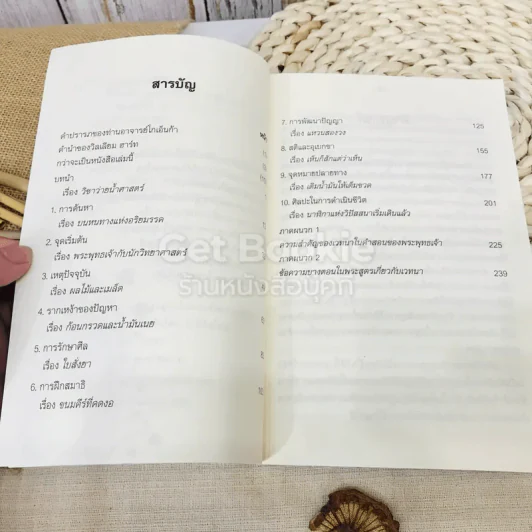 สารบัญ
คำปรารภของท่านอาจารย์โกเอ็นก้า
คำนำของวิลเลียม ฮาร์ท
กว่าจะเป็นหนังสือเล่มนี้
บทนำ
เรื่อง วิชาว่ายน้ำศาสตร์
1. การค้นหา
เรื่อง บนหนทางแห่งอริยมรรค
2. จุดเริ่มต้น
เรื่อง พระพุทธเจ้ากับนักวิทยาศาสตร์
3. เหตุปัจจุบัน
เรื่อง ผลไม้และเมล็ด
4. รากเหง้าของปัญหา
เรื่อง ก้อนกรวดและน้ำมันเนย
5. การรักษาศีล
เรื่อง ใบสั่งยา
6. การฝึกสมาธิ
เรื่อง ขนมคีร์ที่คดงอ
7. การพัฒนาปัญญา 125
เรื่อง แหวนสองวง
8. สติและอุเบกขา 155
เรื่อง เห็นก็สักแต่ว่าเห็น
9. จุดหมายปลายทาง 177
เรื่อง เติมน้ำมันให้เต็มขวด
10. ศิลปะในการดำเนินชีวิต 201
เรื่อง นาฬิกาแห่งวิปัสสนาเริ่มเดินแล้ว
ภาคผนวก 1
ความสำคัญของเวทนาในคำสอนของพระพุทธเจ้า 225
ภาคผนวก 2
ข้อความบางตอนในพระสูตรเกี่ยวกับเวทนา 239
Get Bookie
ร้านหนังสือบุคกี้